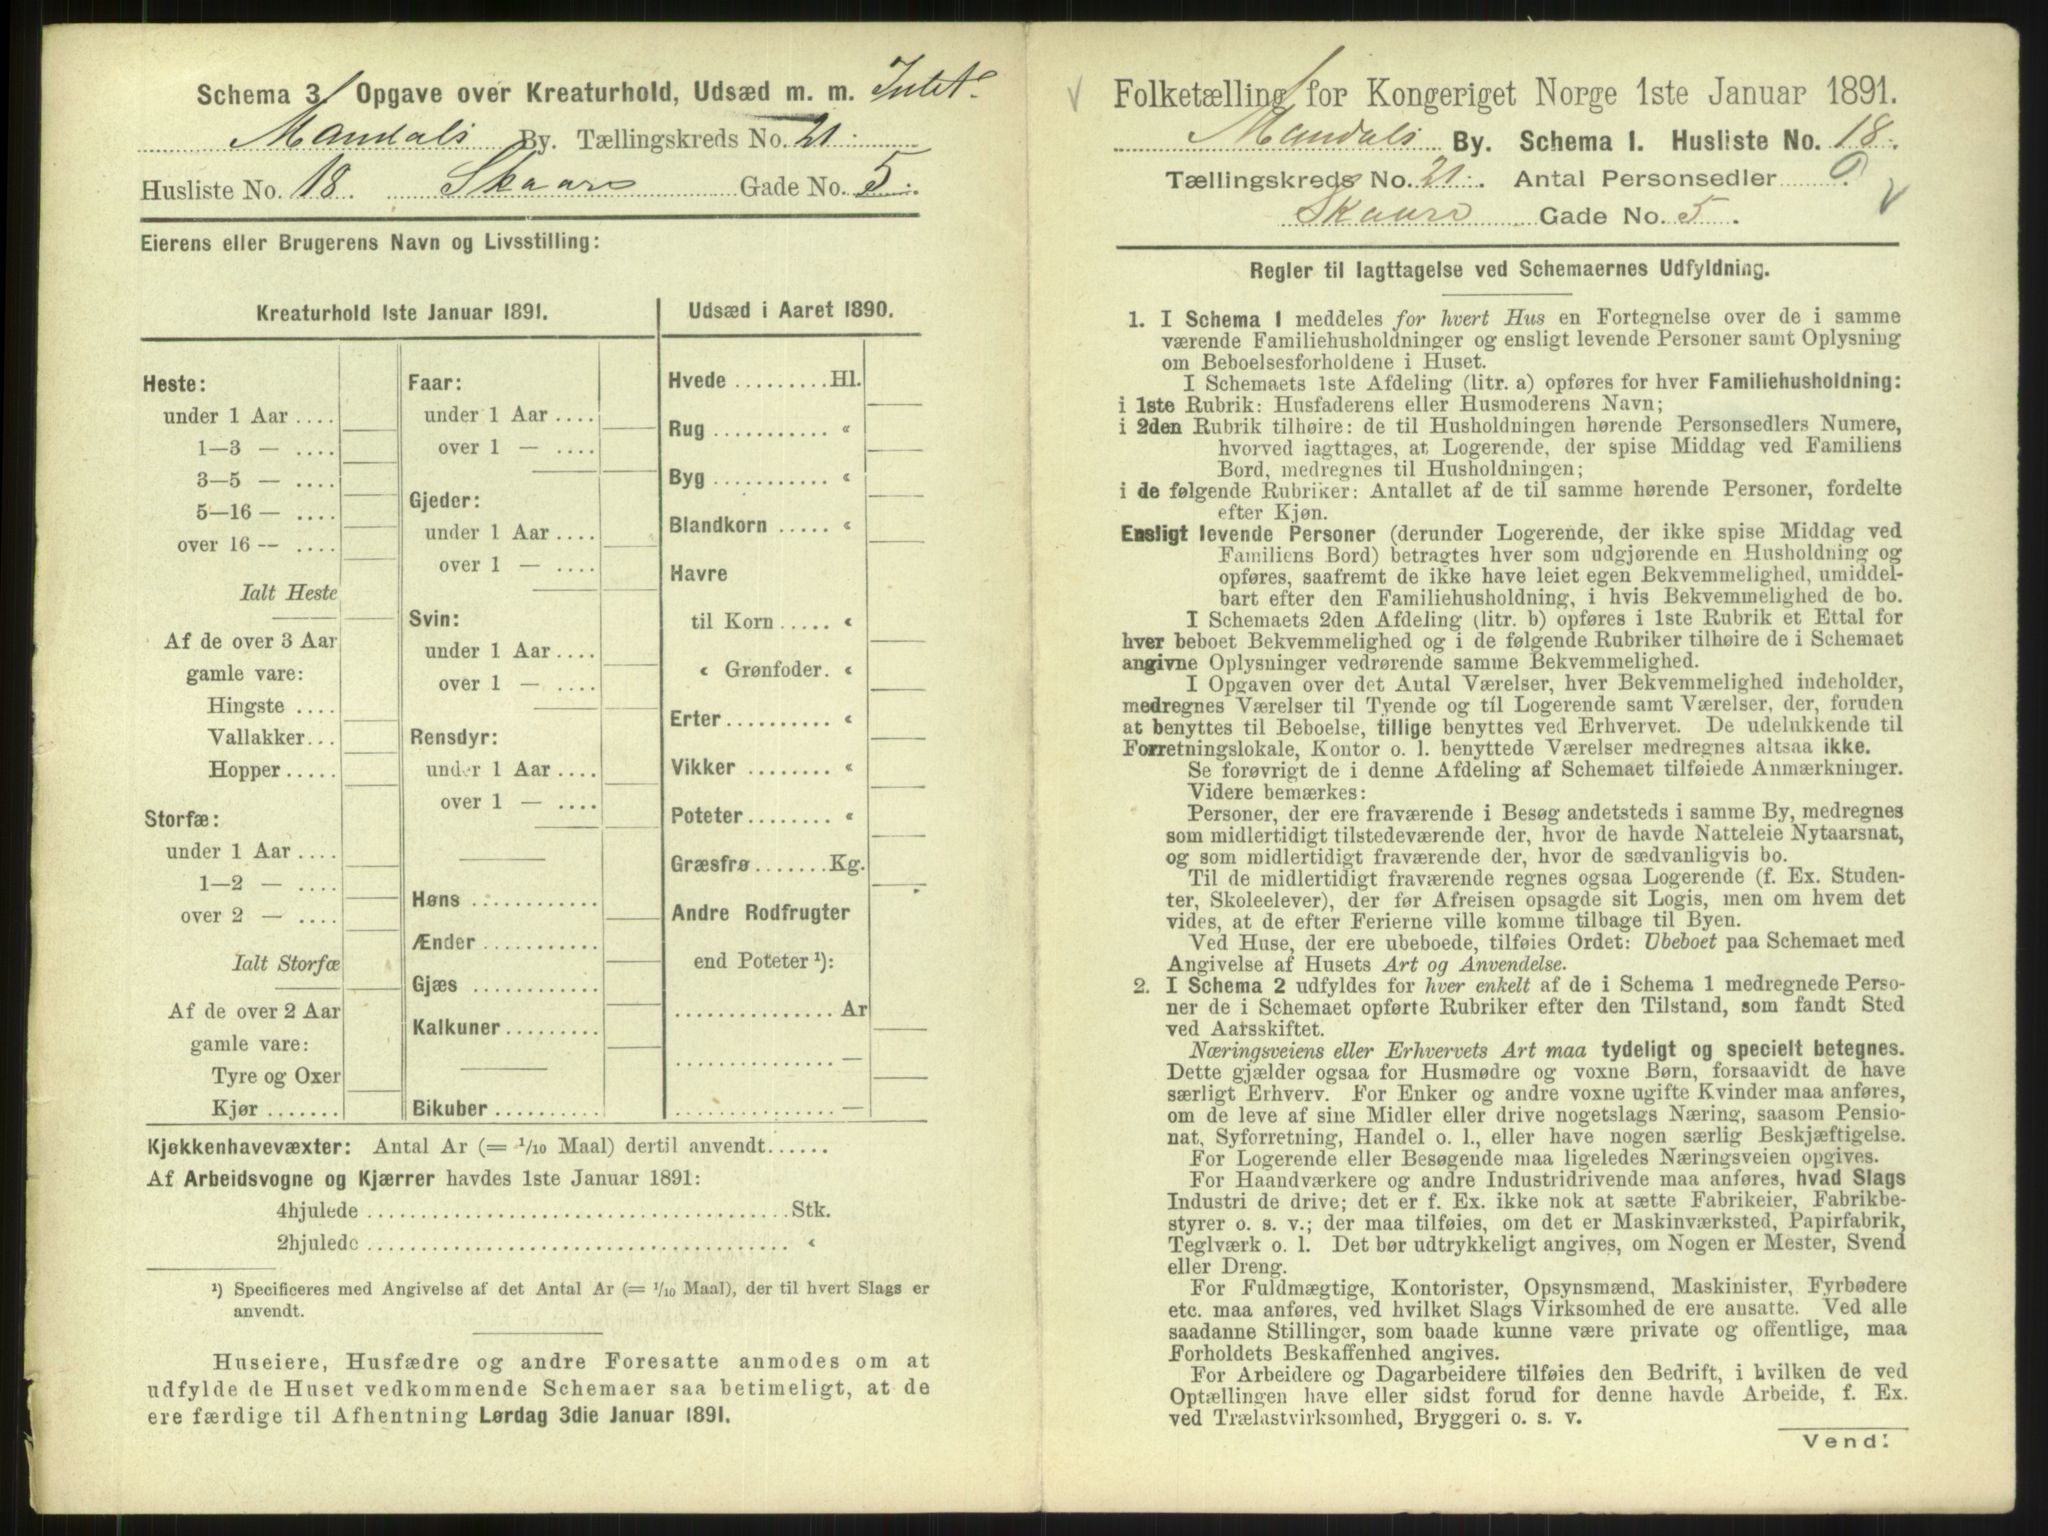 Schema 3. Opgave over Kreaturhold, Udsæd m. m. Intet.
Mandals By. Tællingskreds No. 21.
Husliste No. 18. Skaars Gade No. 5.
Eierens eller Brugerens Navn og Livsstilling:
Kreaturhold 1ste Januar 1891.
Heste:
under 1 Aar ....
1—3 — ....
3—5 — ....
5—16 — ....
over 16 — ....
Ialt Heste
Af de over 3 Aar
gamle vare:
Hingste ....
Vallakker...
Hopper.....
Storfæ:
under 1 Aar ....
1—2 — ....
over 2 — ....
Ialt Storfæ
Af de over 2 Aar
gamle vare:
Tyre og Oxer
Kjør .......
Faar:
under 1 Aar ....
over 1 — ....
Gjeder:
under 1 Aar ....
over 1 — ....
Svin:
under 1 Aar ....
over 1 — ....
Rensdyr:
under 1 Aar ....
over 1 — ....
Høns ............
Ænder ...........
Gjæs ............
Kalkuner.........
Bikuber ..........
Udsæd i Aaret 1890.
Hvede .........Hl.
Rug ........... «
Byg ........... «
Blandkorn ..... «
Havre
til Korn ..... «
« Grønfoder. «
Erter.......... «
Vikker ........ «
Poteter........ «
Græsfrø.......Kg.
Andre Rodfrugter
end Poteter ¹):
............... Ar
............... —
............... —
Kjøkkenhavevæxter: Antal Ar (= 1/10 Maal) dertil anvendt......
Af Arbeidsvogne og Kjærrer havdes 1ste Januar 1891:
4hjulede .......................................Stk.
2hjulede ....................................... «
¹) Specificeres med Angivelse af det Antal Ar (= 1/10 Maal), der til hvert Slags er
anvendt.
Huseiere, Husfædre og andre Foresatte anmodes om at
udfylde de Huset vedkommende Schemaer saa betimeligt, at de
ere færdige til Afhentning Lørdag 3die Januar 1891.
Folketælling for Kongeriget Norge 1ste Januar 1891.
Mandals By. Schema I. Husliste No. 18.
Tællingskreds No. 21. Antal Personsedler 0.
Skaars Gade No. 5.
Regler til Iagttagelse ved Schemaernes Udfyldning.
1. I Schema 1 meddeles for hvert Hus en Fortegnelse over de i samme
værende Familiehusholdninger og ensligt levende Personer samt Oplysning
om Beboelsesforholdene i Huset.
I Schemaets 1ste Afdeling (litr. a) opføres for hver Familiehusholdning:
i 1ste Rubrik: Husfaderens eller Husmoderens Navn;
i 2den Rubrik tilhøire: de til Husholdningen hørende Personsedlers Numere,
hvorved iagttages, at Logerende, der spise Middag ved Familiens
Bord, medregnes til Husholdningen;
i de følgende Rubriker: Antallet af de til samme hørende Personer, fordelte
efter Kjøn.
Ensligt levende Personer (derunder Logerende, der ikke spise Middag ved
Familiens Bord) betragtes hver som udgjørende en Husholdning og
opføres, saafremt de ikke have leiet egen Bekvemmelighed, umiddel-
bart efter den Familiehusholdning, i hvis Bekvemmelighed de bo.
I Schemaets 2den Afdeling (litr. b) opføres i 1ste Rubrik et Ettal for
hver beboet Bekvemmelighed og i de følgende Rubriker tilhøire de i Schemaet
angivne Oplysninger vedrørende samme Bekvemmelighed.
I Opgaven over det Antal Værelser, hver Bekvemmelighed indeholder,
medregnes Værelser til Tyende og til Logerende samt Værelser, der, foruden
at benyttes til Beboelse, tillige benyttes ved Erhvervet. De udelukkende til
Forretningslokale, Kontor o. l. benyttede Værelser medregnes altsaa ikke.
Se forøvrigt de i denne Afdeling af Schemaet tilføiede Anmærkninger.
Videre bemærkes:
Personer, der ere fraværende i Besøg andetsteds i samme By, medregnes
som midlertidigt tilstedeværende der, hvor de havde Natteleie Nytaarsnat,
og som midlertidigt fraværende der, hvor de sædvanligvis bo.
Til de midlertidigt fraværende regnes ogsaa Logerende (f. Ex. Studen-
ter, Skoleelever), der før Afreisen opsagde sit Logis, men om hvem det
vides, at de efter Ferierne ville komme tilbage til Byen.
Ved Huse, der ere ubeboede, tilføies Ordet: Ubeboet paa Schemaet med
Angivelse af Husets Art og Anvendelse.
2. I Schema 2 udfyldes for hver enkelt af de i Schema 1 medregnede Perso-
ner de i Schemaet opførte Rubriker efter den Tilstand, som fandt Sted
ved Aarsskiftet.
Næringsveiens eller Erhvervets Art maa tydeligt og specielt betegnes.
Dette gjælder ogsaa for Husmødre og voxne Børn, forsaavidt de have
særligt Erhverv. For Enker og andre voxne ugifte Kvinder maa anføres,
om de leve af sine Midler eller drive nogetslags Næring, saasom Pensio-
nat, Syforretning, Handel o. l., eller have nogen særlig Beskjæftigelse.
For Logerende eller Besøgende maa ligeledes Næringsveien opgives.
For Haandværkere og andre Industridrivende maa anføres, hvad Slags
Industri de drive; det er f. Ex. ikke nok at sætte Fabrikeier, Fabrikbe-
styrer o. s. v.; der maa tilføies, om det er Maskinværksted, Papirfabrik,
Teglværk o. l. Det bør udtrykkeligt angives, om Nogen er Mester, Svend
eller Dreng.
For Fuldmægtige, Kontorister, Opsynsmænd, Maskinister, Fyrbødere
etc. maa anføres, ved hvilket Slags Virksomhed de ere ansatte. Ved alle
saadanne Stillinger, som baade kunne være private og offentlige, maa
Forholdets Beskaffenhed angives.
For Arbeidere og Dagarbeidere tilføies den Bedrift, i hvilken de ved
Optællingen have eller sidst forud for denne havde Arbeide, f. Ex.
ved Trælastvirksomhed, Bryggeri o. s. v.
Vend: